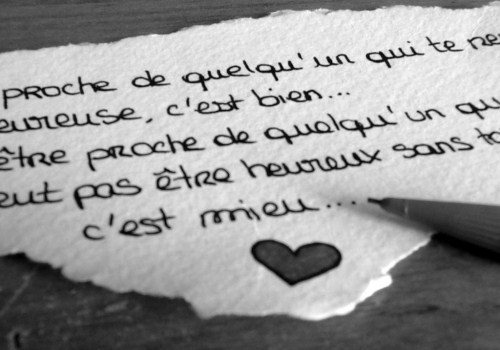 proche de quelqu'un qui te
eureuse, c'est bien...
être proche de quelqu'un qu
eut pas être heureux sans to
c'est mieu....